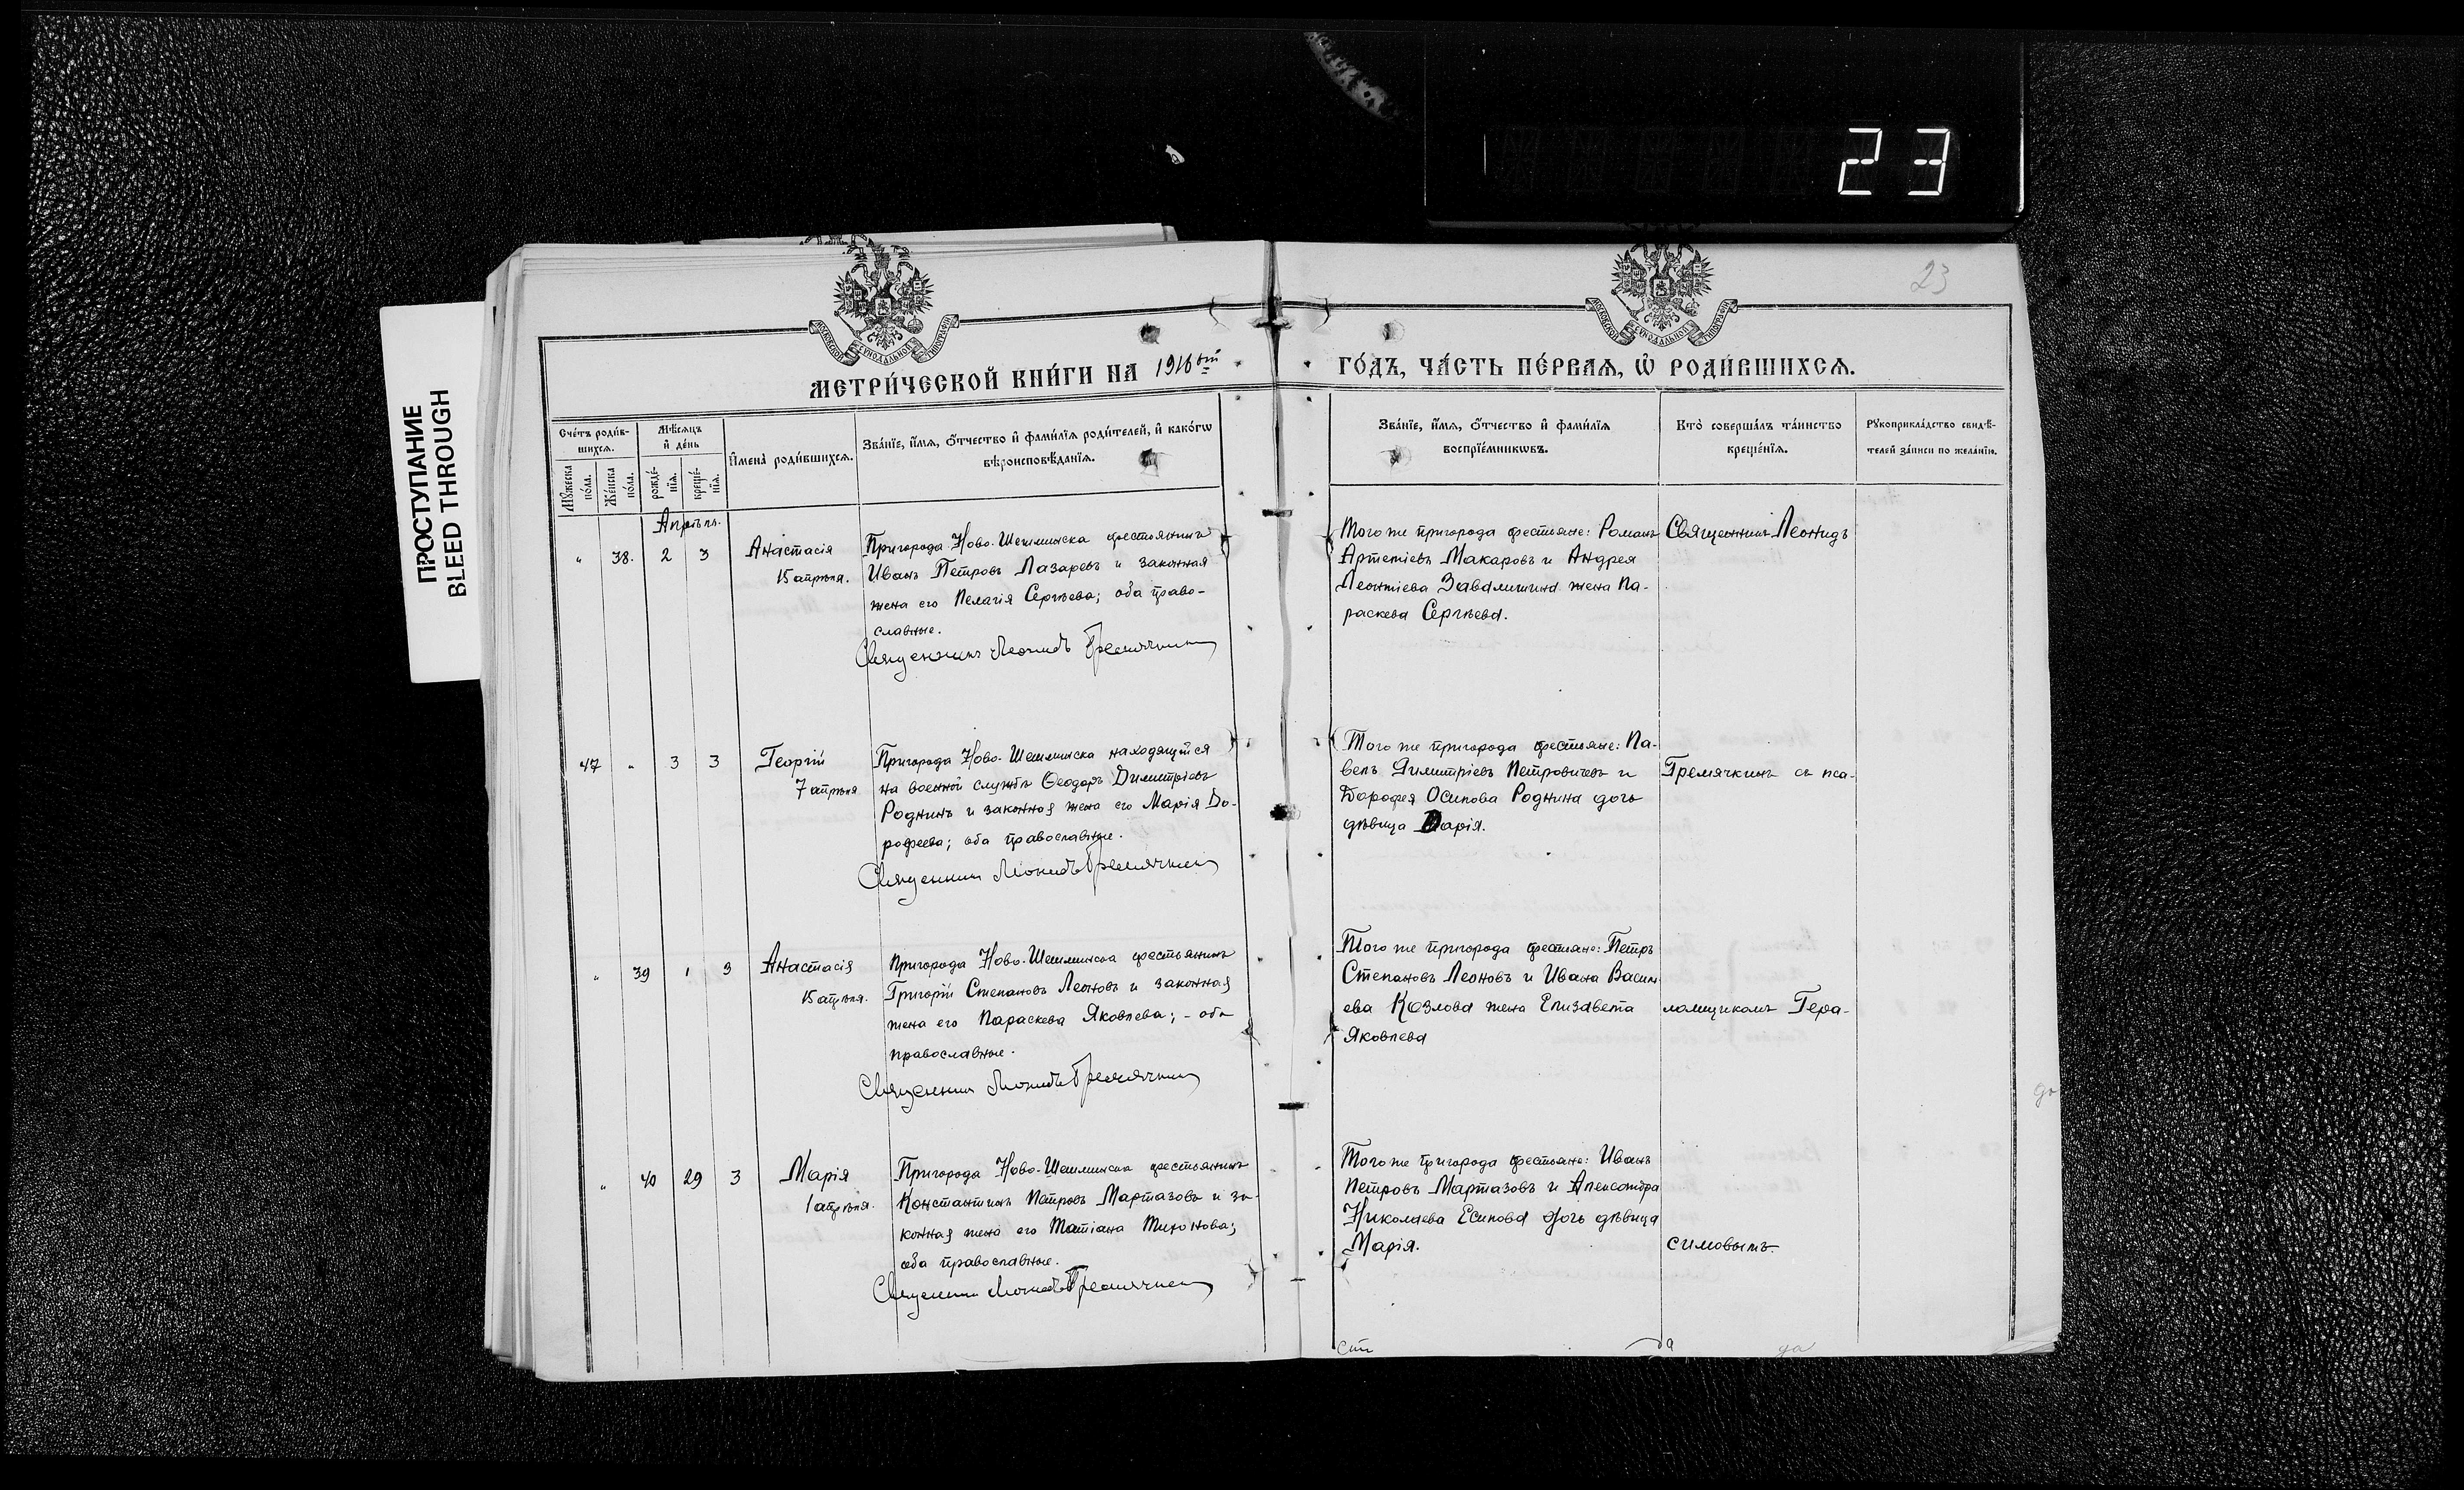 23
ПРОСТУПАНИЕ
BLEED THROUGH
23
МОСКОВСКОЙ СѴНОДАЛЬНОЙ ТИПОГРАФІИ
МОСКОВСКОЙ СѴНОДАЛЬНОЙ ТИПОГРАФІИ
МЕТРИ́ЧЕСКОЙ КНИ́ГИ НА 1916 ый
ГО́ДЪ, ЧА́СТЬ ПЕ́РВАѦ, Ѡ҆ РОДИ́ВШИХСѦ.
Сче́тъ роди́в-
шихсѧ.
Мѣ́сѧцъ
и҆ де́нь
И҆мена̀ роди́вшихсѧ.
Зва́нїе, и҆́мѧ, ѻ҆́тчество и҆ фами́лїѧ роди́телей, и҆ како́гѡ
вѣроисповѣ́данїѧ.
Мꙋ́жеска
по́ла.
Же́нска
по́ла.
рожде́-
нїѧ.
креще́-
нїѧ.
Зва́нїе, и҆́мѧ, ѻ҆́тчество и҆ фами́лїѧ
воспрїе́мникѡвъ.
Кто̀ соверша́лъ та́инство
креще́нїѧ.
Рꙋкоприкла́дство свидѣ́-
телей за́писи по жела́нїю.
Апрѣль.
„ 38. 2 3 Анастасія
15 апрѣля.
Пригорода Ново-Шешминска крестьянинъ
Иванъ Петровъ Лазаревъ и законная
жена его Пелагія Сергѣева; оба право-
славные.
Священникъ Леонидъ Гремячкинъ
Того же пригорода крестьяне: Романъ
Артеміевъ Макаровъ и Андрея
Леонтіева Завалишина жена Па-
раскева Сергѣева.
Священникъ Леонидъ
47 „ 3 3 Георгій
7 апрѣля
Пригорода Ново-Шешминска находящійся
на военной службѣ Ѳеодоръ Димитріевъ
Роднинъ и законная жена его Марія До-
рофеева; оба православные.
Священникъ Леонидъ Гремячкинъ
Того же пригорода крестьяне: Па-
велъ Димитріевъ Петровичевъ и
Дорофея Осипова Роднина дочь
дѣвица Дарія.
Гремячкинъ съ пса-
„ 39 1 3 Анастасія
15 апрѣля.
Пригорода Ново-Шешминска крестьянинъ
Григорій Степановъ Леоновъ и законная
жена его Параскева Яковлева; - оба
православные.
Священникъ Леонидъ Гремячкинъ
Того же пригорода крестьяне: Петръ
Степановъ Леоновъ и Ивана Васил
ева Козлова жена Елизавета
Яковлева
ломщикомъ Гера-
„ 40 29 3 Марія
1 апрѣля.
Пригорода Ново-Шешминска крестьянинъ
Константинъ Петровъ Мартазовъ и за-
конная жена его Татіана Тихонова;
оба православные.
Священникъ Леонидъ Гремячкинъ
Того же пригорода крестьяне: Иванъ
Петровъ Мартазовъ и Александра
Николаева Есипова дочь дѣвица
Марія.
симовымъ.